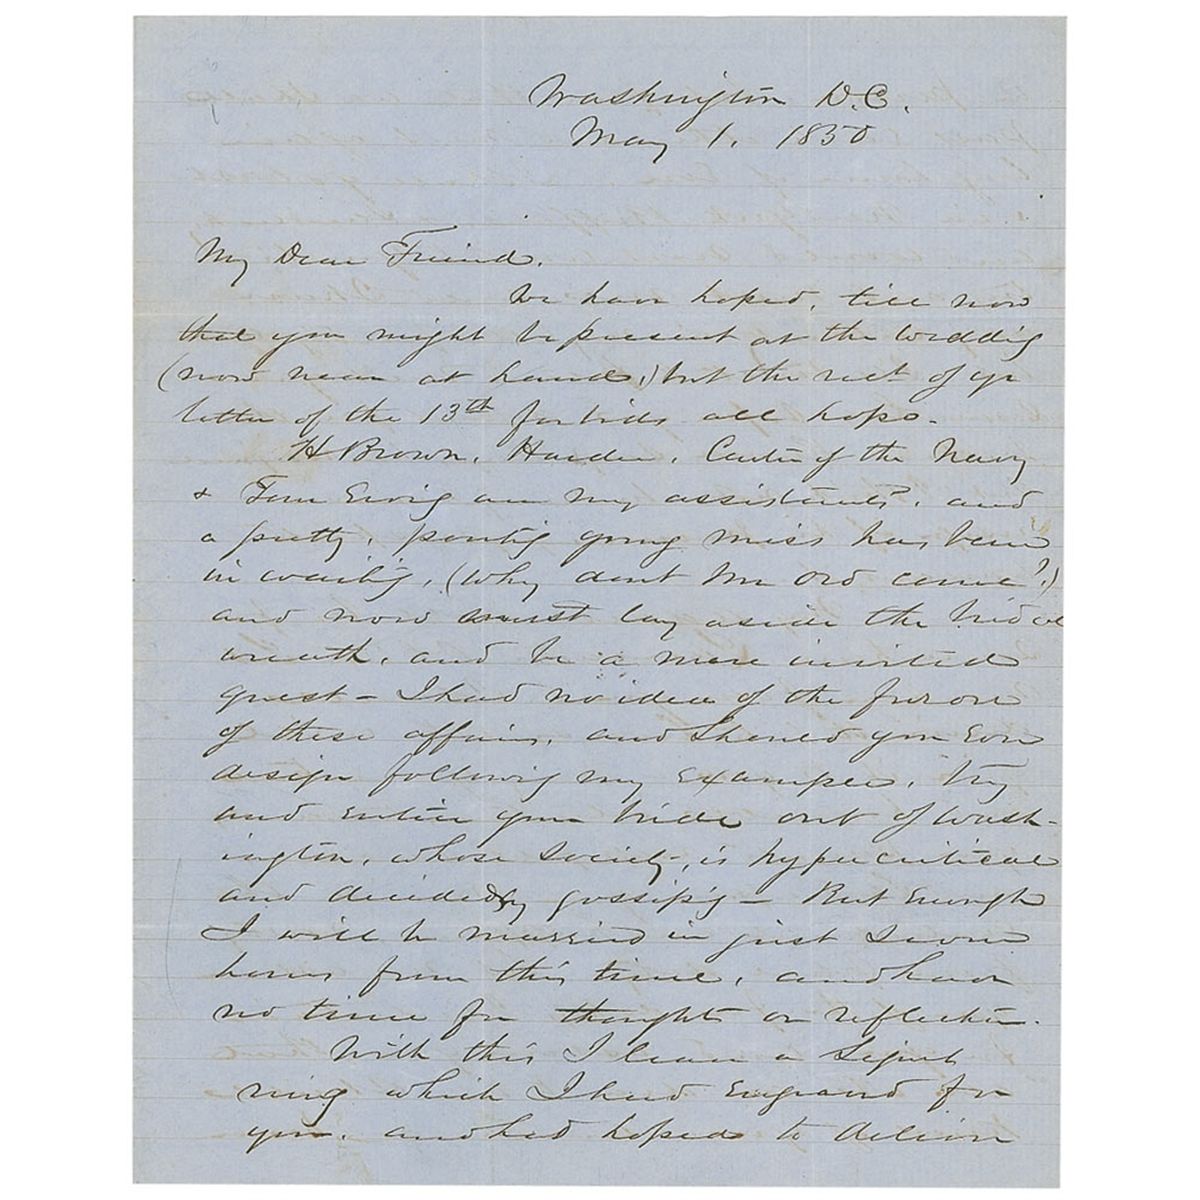 Washington D.C.
May 1. 1850
My Dear Friend.
We have hoped, till now
that you might be present at the wedding
(now near at hand,) but the rect of yr
letter of the 13th forbids all hope.
H Brown, Hardee, Carter of the Navy
& Tom Ewing are my assistants, and
a pretty, pouting young miss has been
in waiting, (why dont Mr Ord come?)
and now must lay aside the bridal
wreath, and be a mere invited
guest - I had no idea of the furore
of these affairs, and should you Ever
design following my Example, try
and entice your bride out of Wash-
ington, whose society, is hypercritical
and decidedly gossip'g - But Enough
I will be married in just seven
hours from this time, and have
no time for thoughts or reflection.
With this I leave a Signet
ring which I had Engraved for
you, and had hoped to deliver